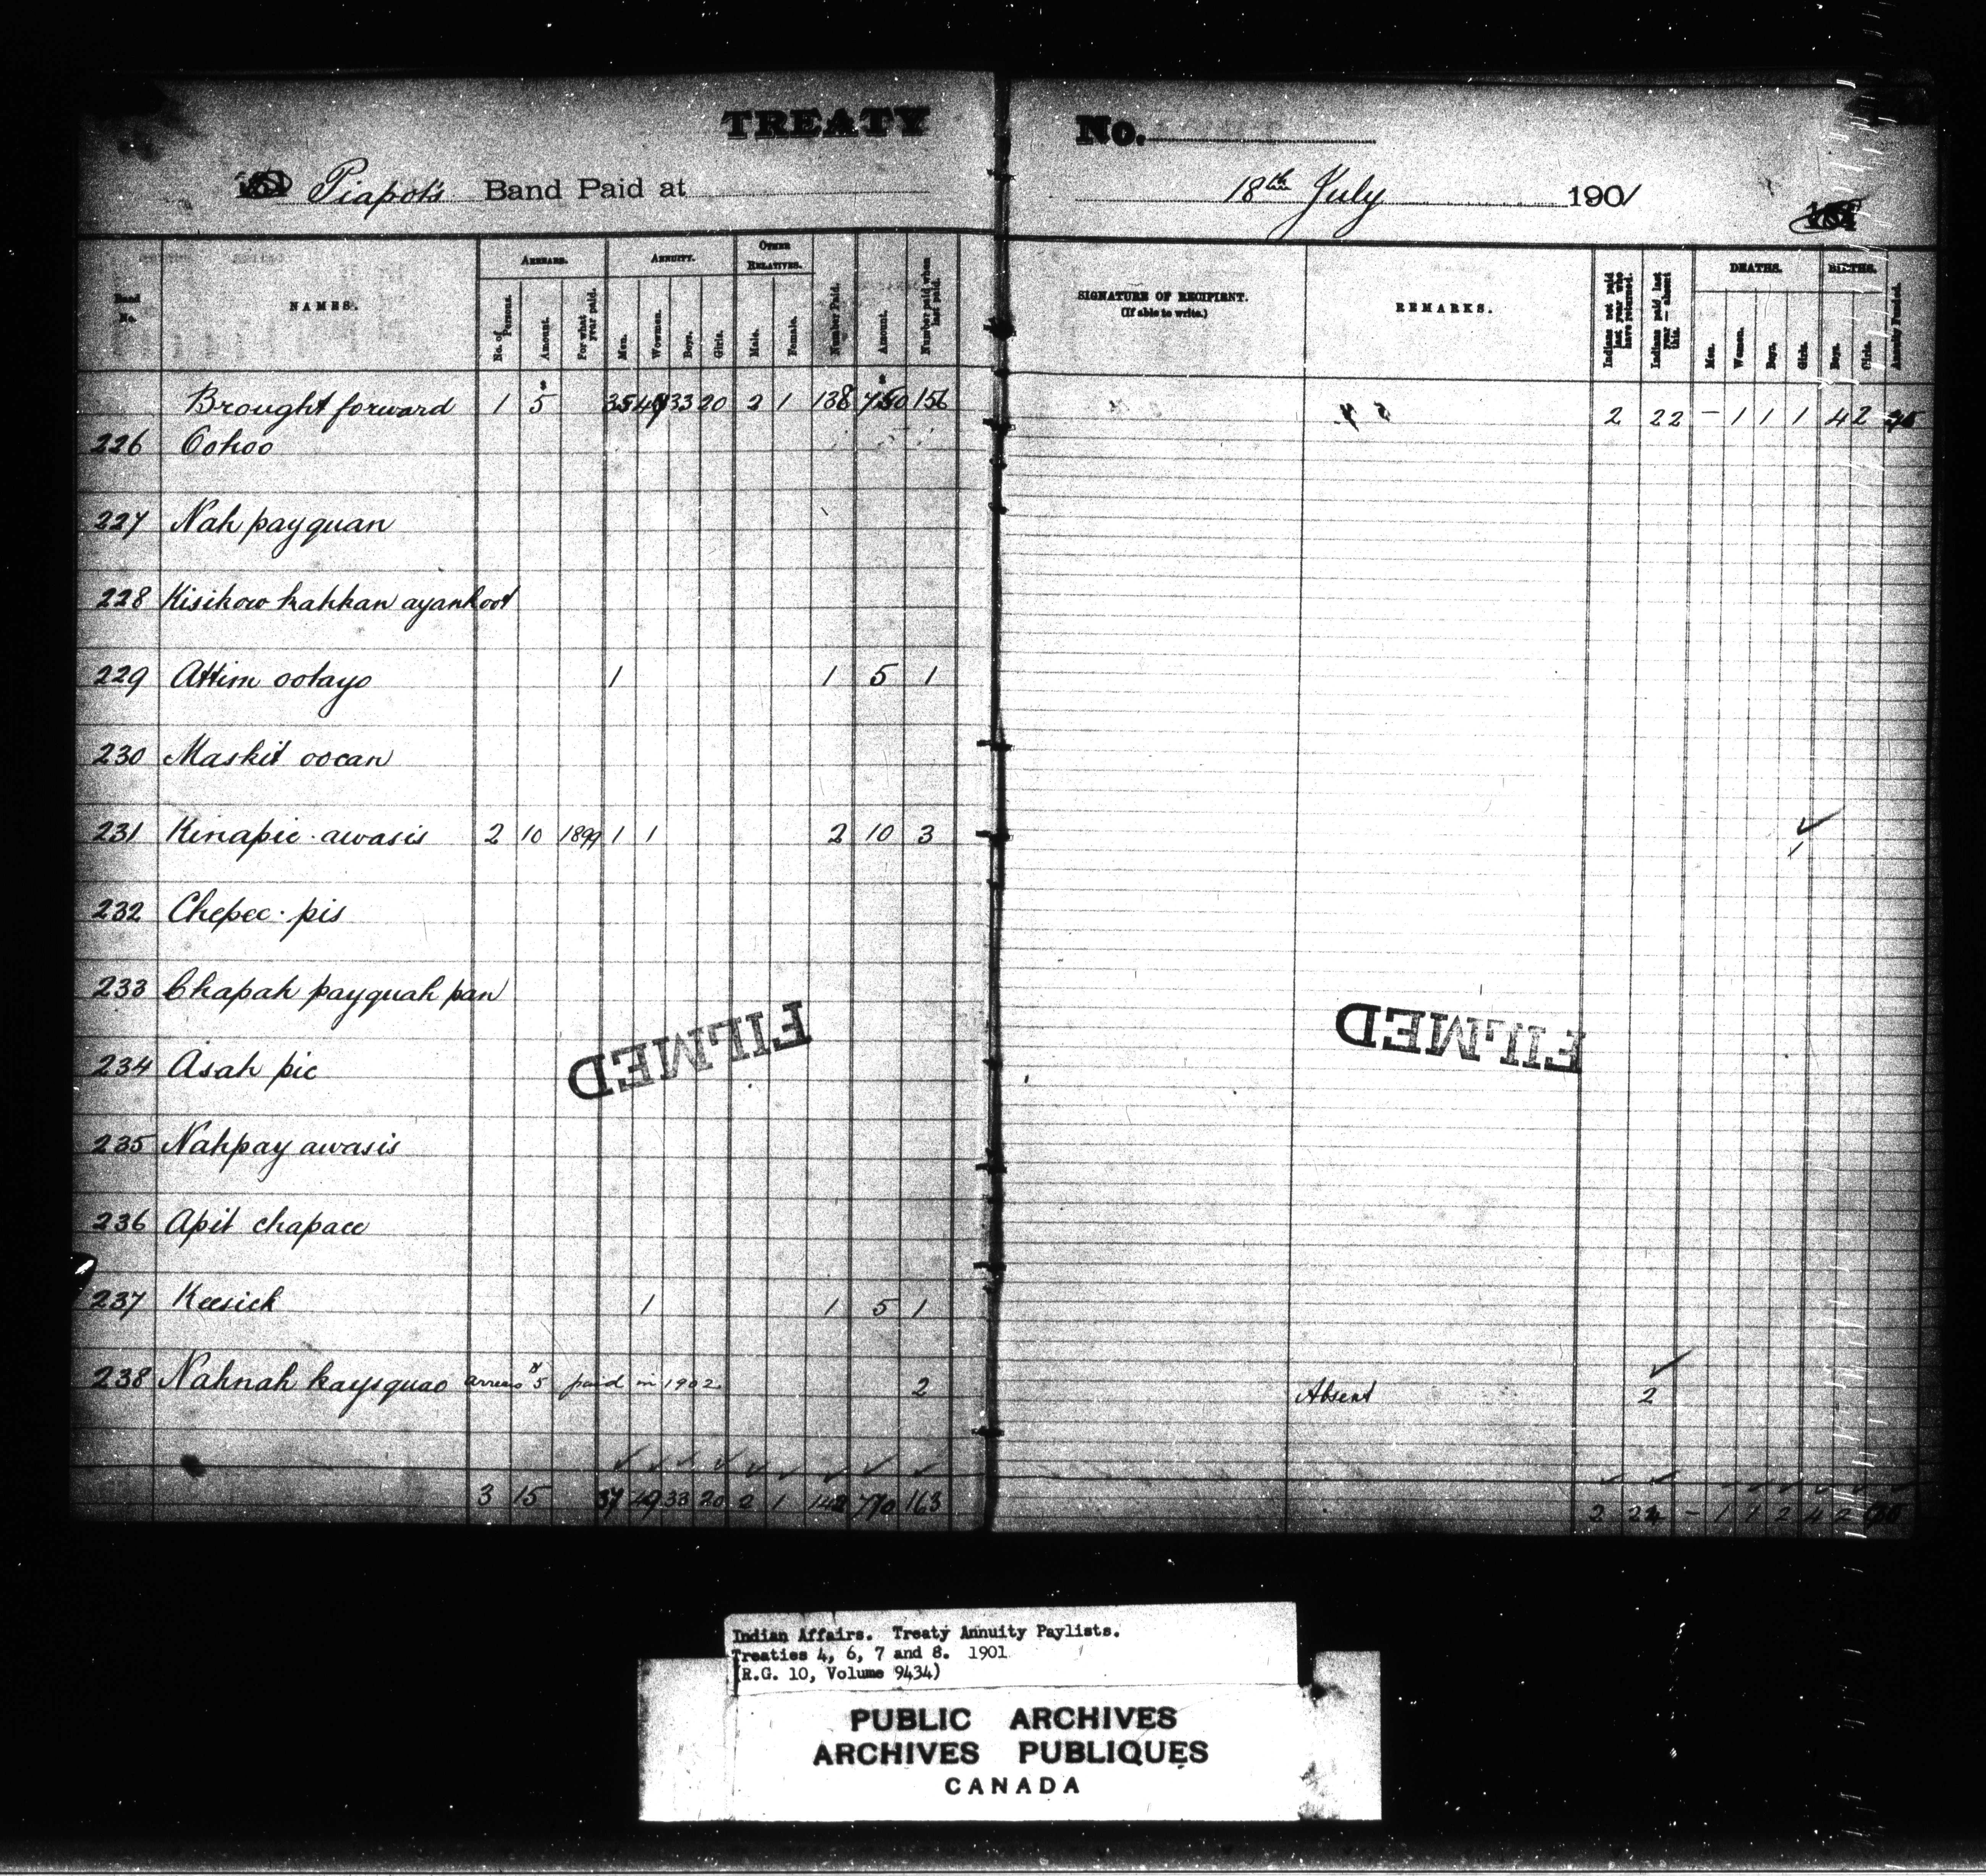 TREATY No.
Piapot's Band Paid at 18th July 1901
Band No.
NAMES.
ARREARS.
No. of Persons.
Amount.
For what year paid.
ANNUITY.
Men.
Women.
Boys.
Girls.
OTHER RELATIVES.
Male.
Female.
Number Paid.
Amount.
Number paid when last paid.
SIGNATURE OF RECIPIENT.
(If able to write.)
REMARKS.
Indians not paid last year who have returned.
Indians paid last year — absent this.
DEATHS.
Men.
Women.
Boys.
Girls.
BIRTHS.
Boys.
Girls.
Annuity Funded.
Brought forward 1 5 35 33 20 2 1 138 156 2 22 – 1 1 1 4 2
226 Oohoo
227 Nah payquan
228 Kisikow kahkan ayankoot
229 Attim ootayo 1 1 5 1
230 Maskit oocan
231 Kinapic awasis 2 10 1899 1 1 2 10 3 1
232 Chepec pis
233 Chapah payquah pan
234 Asah pic
235 Nahpay awasis
236 Apit chapace
237 Keesick 1 1 5 1
238 Nahnah kaysquao arrears $5 paid in 1902 2 Absent 2
3 15 37 49 33 20 2 1 142 710 163 2 24 – 1 1 2 4 2
FILMED
FILMED
Indian Affairs. Treaty Annuity Paylists.
Treaties 4, 6, 7 and 8. 1901
(R.G. 10, Volume 9434)
PUBLIC ARCHIVES
ARCHIVES PUBLIQUES
CANADA